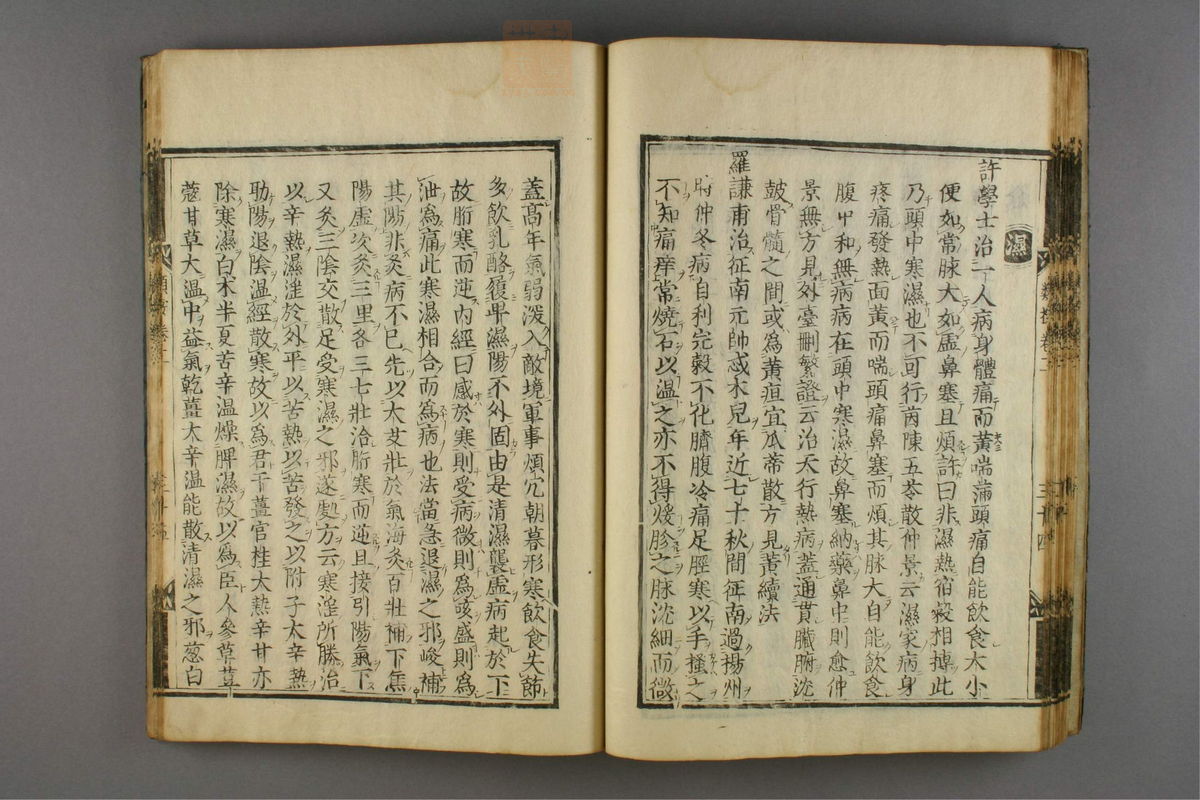 濕
許學士治一人病身體痛而黃喘滿頭痛自能飲食大小
便如常脉大而虛鼻塞且煩許曰非濕熱宿穀相搏此
乃頭中寒濕也不可行茵陳五苓散仲景云濕家病身
疼痛發熱面黃而喘頭痛鼻塞而煩其脉大自能飲食
腹中和無病病在頭中寒濕故鼻塞納藥鼻中則愈仲
景無方見外臺刪繁證云治天行熱病蓋通貫臟腑沈
鼓骨髓之間或為黃疸宜瓜蒂散方見黃續法
羅謙甫治征南元帥忒木兒年近七十秋間征南過揚州
時仲冬病自利完穀不化臍腹冷痛足脛寒以手搔之
不知痛痒常燒石以温之亦不得煖胗之脉沈細而微
蓋高年氣弱深入敵境軍事煩冗朝暮形寒飲食失節
多飲乳酪履卑濕陽不外固由是清濕襲虛病起於下
故胻寒而逆內經曰感於寒則受病微則為咳盛則為
泄為痛此寒濕相合而為病也法當急退濕之邪峻補
其陽非灸病不已先以大艾壯於氣海灸百壯補下焦
陽虛次灸三里各三七壯治胻寒而逆且接引陽氣下
又灸三陰交散足受寒濕之邪遂處方云寒淫所勝治
以辛熱濕淫於外平以苦熱以苦發之以附子大辛熱
助陽退陰温經散寒故以為君干薑官桂大熱辛甘亦
除寒濕白术半夏苦辛温燥脾濕故以為臣人參草荳
蔻甘草大温中益氣乾薑大辛温能散清濕之邪葱白